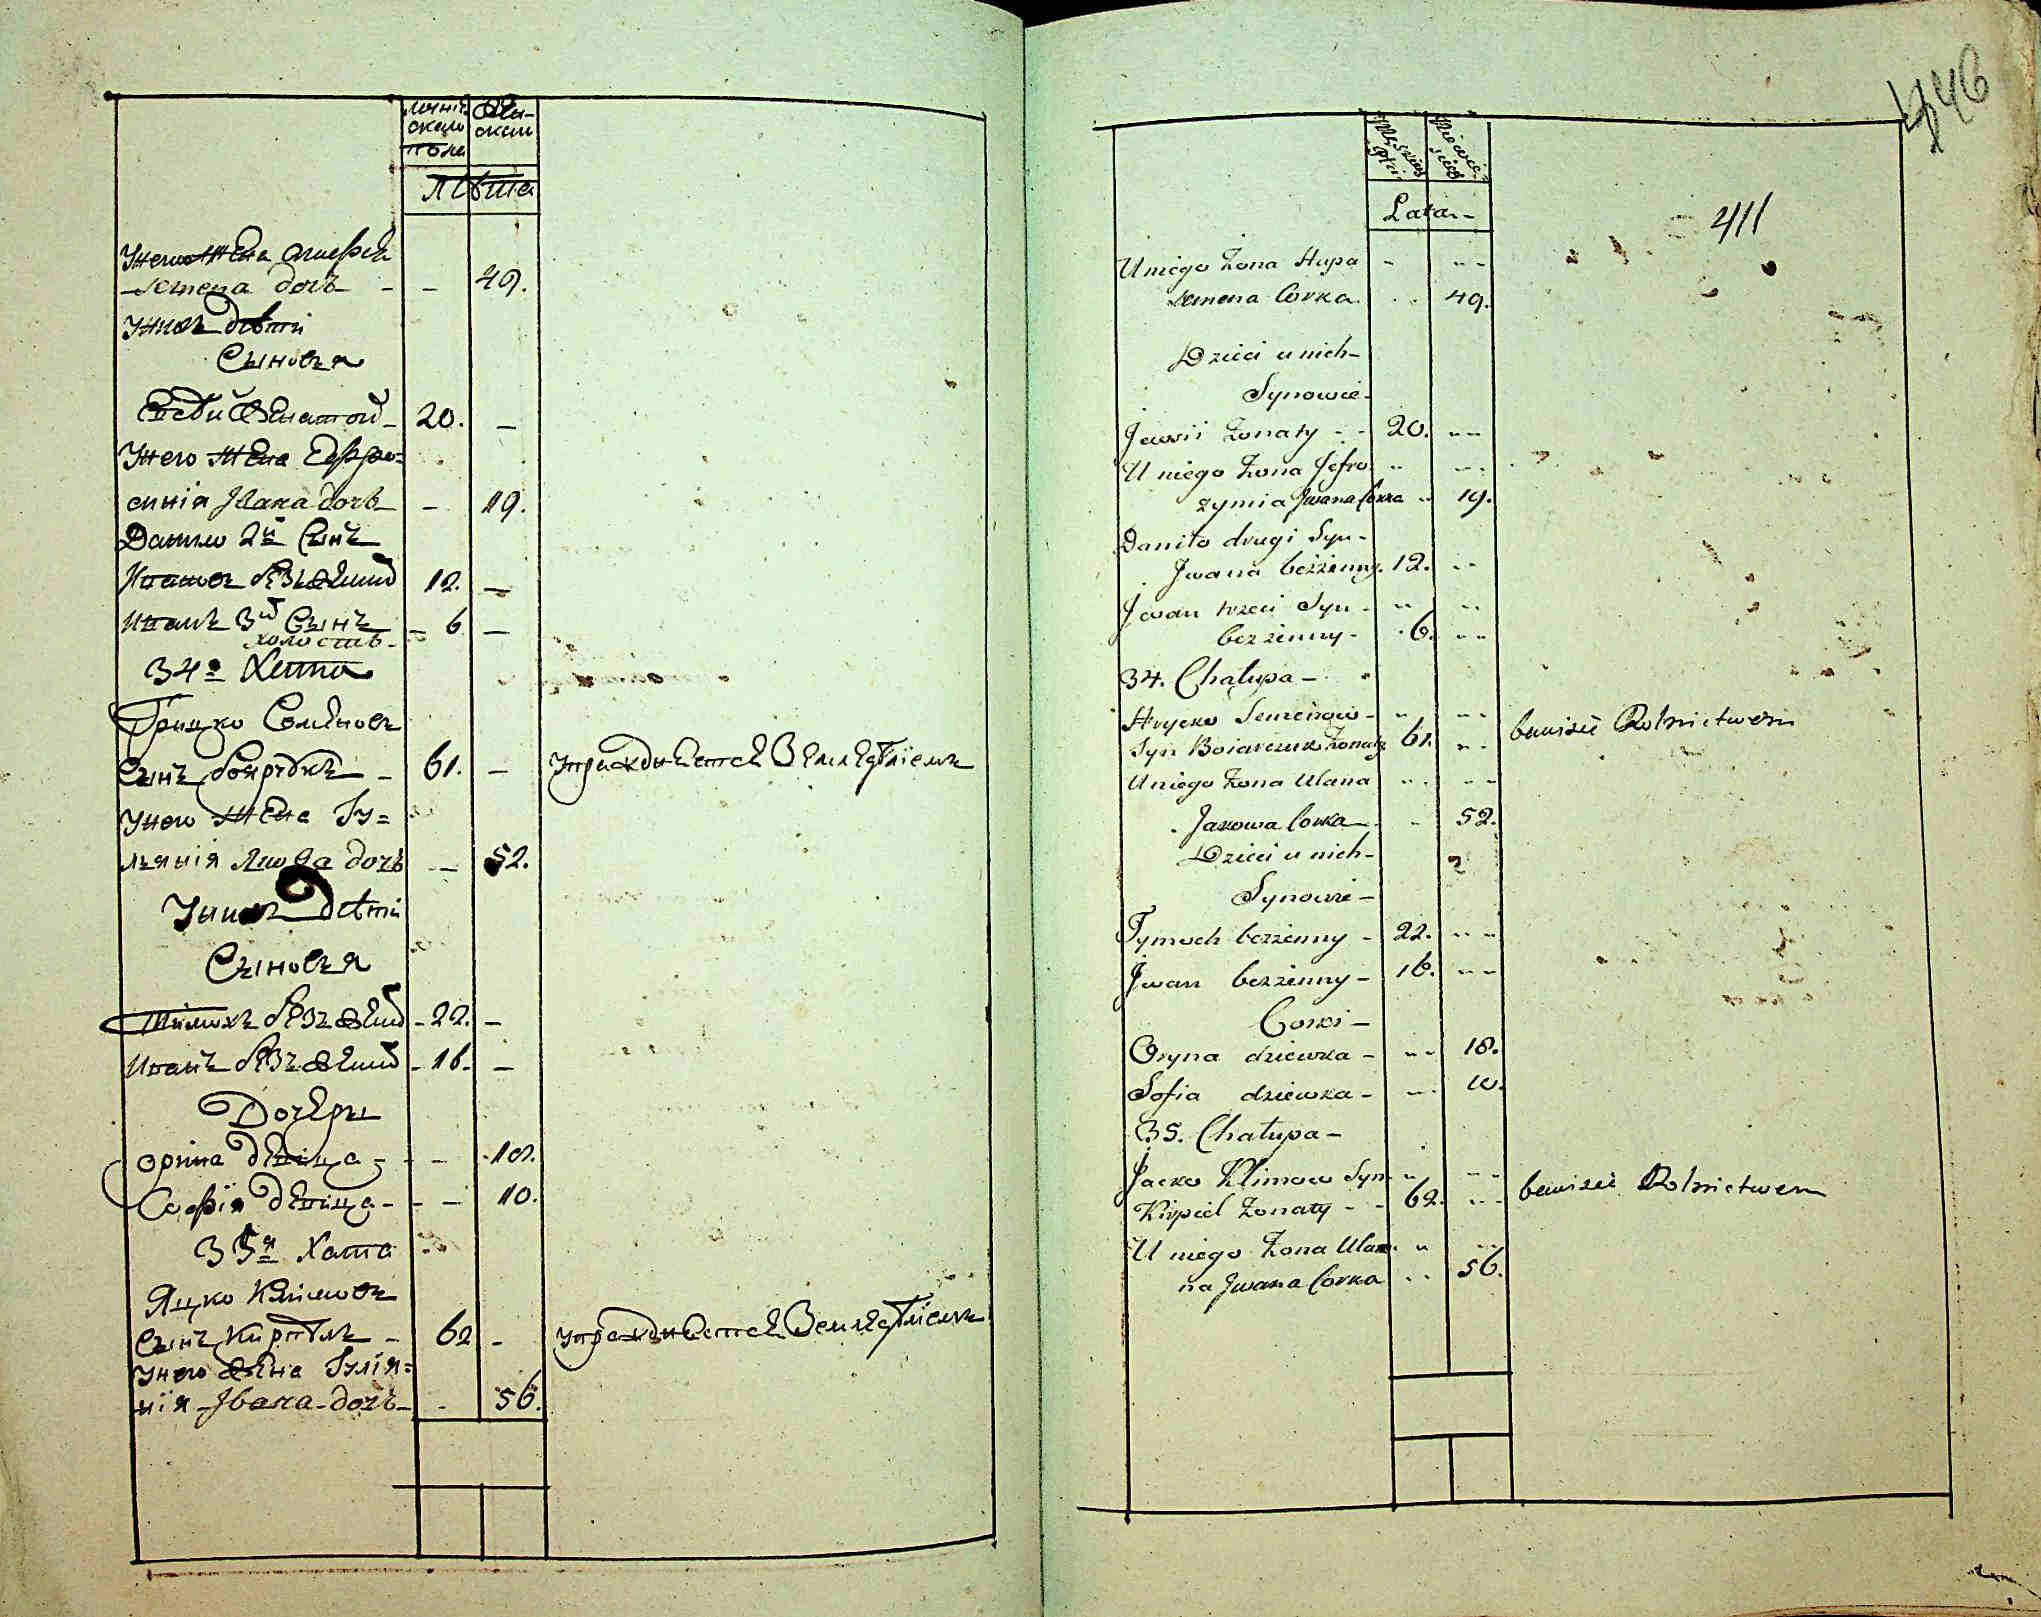 Лета
Унего Жена
Семена дочь - - 49.
Унихъ дѣти
Сыновья
20. -
Унего Жена Ефро=
синія Ивана дочь - - 19.
Данило 2й Сынъ
Ивановъ безженной 12. -
Иванъ 3й Сынъ - 6 -
холостъ
34я Хата
Грицко Семеновъ
Сынъ - 61. - Упражняется Земледѣліемъ
Унего Жена Іу=
льянія дочь - 52.
Унихъ дѣти
Сыновья
Тимохъ безженной - 22. -
Иванъ безженной - 16. -
Дочери
Орина девица - - - 18.
Софія девица - - - 10.
35я Хата
Яцко Климовъ
Сынъ - 62 - Упражняется Земледѣліемъ
Унего Жена Іулія=
нія Ивана дочь - - 56.
446
Lata -
411
U niego Żona Hapa - - -
Semena Corka - - 49.
Dzieci u nich -
Synowie -
Jewsii Żonaty - - 20. - -
U niego Żona Jefro - - -
zymia Jwana Corka - 19.
Daniło drugi Syn -
Jwana bezżenny. 12. - -
Jwan trzeci Syn - - - - -
bezżenny - 6. - -
34. Chałupa -
Hrycko Semenow - - - - -
Syn Boiarczuk Żonaty 61. - - bawisie Rolnictwem
U niego Żona Ulana - - - -
Jakowa Corka - - 52.
Dzieci u nich -
Synowie -
Tymoch bezżenny - 22. - -
Jwan bezżenny - 16. - -
Corki -
Oryna dziewka - - - 18.
Sofia dziewka - - - 10.
35. Chałupa -
Jacko Klimow Syn - - - -
Kirpiel Żonaty - - 62. - - bawisie Rolnictwem
U niego Żona Ulan - - -
na Jwana Corka - - 56.